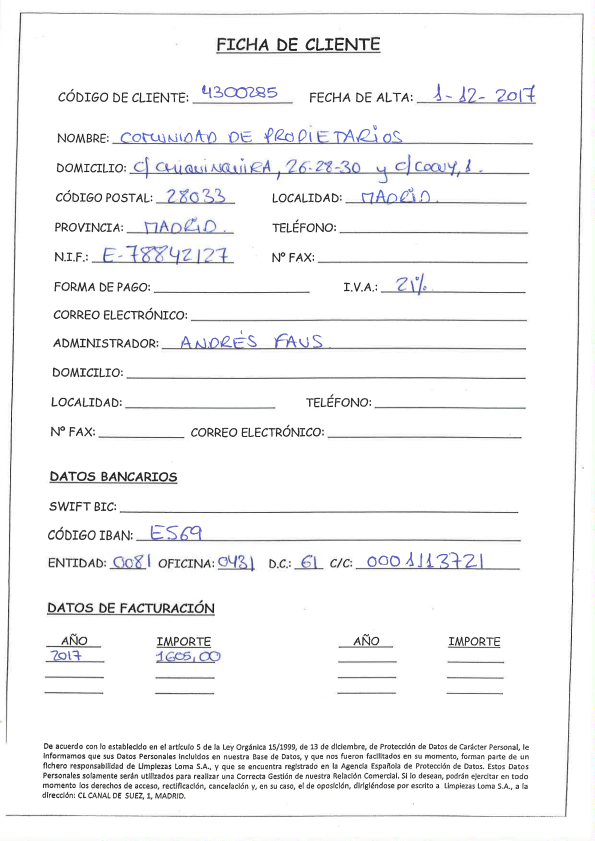 FICHA DE CLIENTE
CÓDIGO DE CLIENTE: 4300285 FECHA DE ALTA: 1-12-2017
NOMBRE: COMUNIDAD DE PROPIETARIOS
DOMICILIO: C/ CHIQUINQUIRA, 26-28-30 y C/ COCUY, 1.
CÓDIGO POSTAL: 28033 LOCALIDAD: MADRID.
PROVINCIA: MADRID. TELÉFONO:
N.I.F.: E-78842127 Nº FAX:
FORMA DE PAGO: I.V.A.: 21%
CORREO ELECTRÓNICO:
ADMINISTRADOR: ANDRÉS FAUS
DOMICILIO:
LOCALIDAD: TELÉFONO:
Nº FAX: CORREO ELECTRÓNICO:
DATOS BANCARIOS
SWIFT BIC:
CÓDIGO IBAN: ES69
ENTIDAD: 0081 OFICINA: 0431 D.C.: 61 C/C: 0001113721
DATOS DE FACTURACIÓN
AÑO IMPORTE AÑO IMPORTE
2017 1605,00
De acuerdo con lo establecido en el artículo 5 de la Ley Orgánica 15/1999, de 13 de diciembre, de Protección de Datos de Carácter Personal, le
informamos que sus Datos Personales incluidos en nuestra Base de Datos, y que nos fueron facilitados en su momento, forman parte de un
fichero responsabilidad de Limpiezas Loma S.A., y que se encuentra registrado en la Agencia Española de Protección de Datos. Estos Datos
Personales solamente serán utilizados para realizar una Correcta Gestión de nuestra Relación Comercial. Si lo desean, podrán ejercitar en todo
momento los derechos de acceso, rectificación, cancelación y, en su caso, el de oposición, dirigiéndose por escrito a Limpiezas Loma S.A., a la
dirección: CL CANAL DE SUEZ, 1, MADRID.